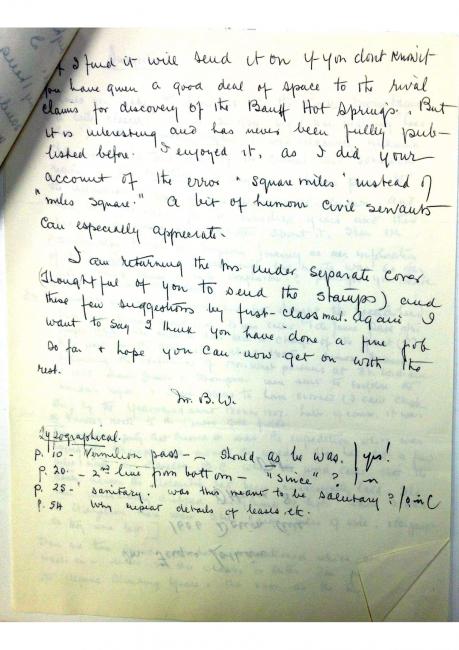 I find it will send it on if you dont know it
you have given a good deal of space to the rival
claims for discovery of the Banff Hot Springs. But
it is interesting and has never been fully pub-
lished before. I enjoyed it, as I did your
account of the error "square miles" instead of
"miles square." A bit of humour civil servants
can especially appreciate.
I am returning the ms under separate cover
(thoughtful of you to send the stamps) and
these few suggestions by first-class mail. Again I
want to say I think you have done a fine job
so far + hope you can now get on with the
rest.
M. B. W.
Typographical.
p. 10 - Vermilion pass - should as be was. yes!
p. 20. - 2nd line from bottom - "since"?
p. 25 - 'sanitary.' was this meant to be salutary?
p. 54 Why repeat details of leases etc.